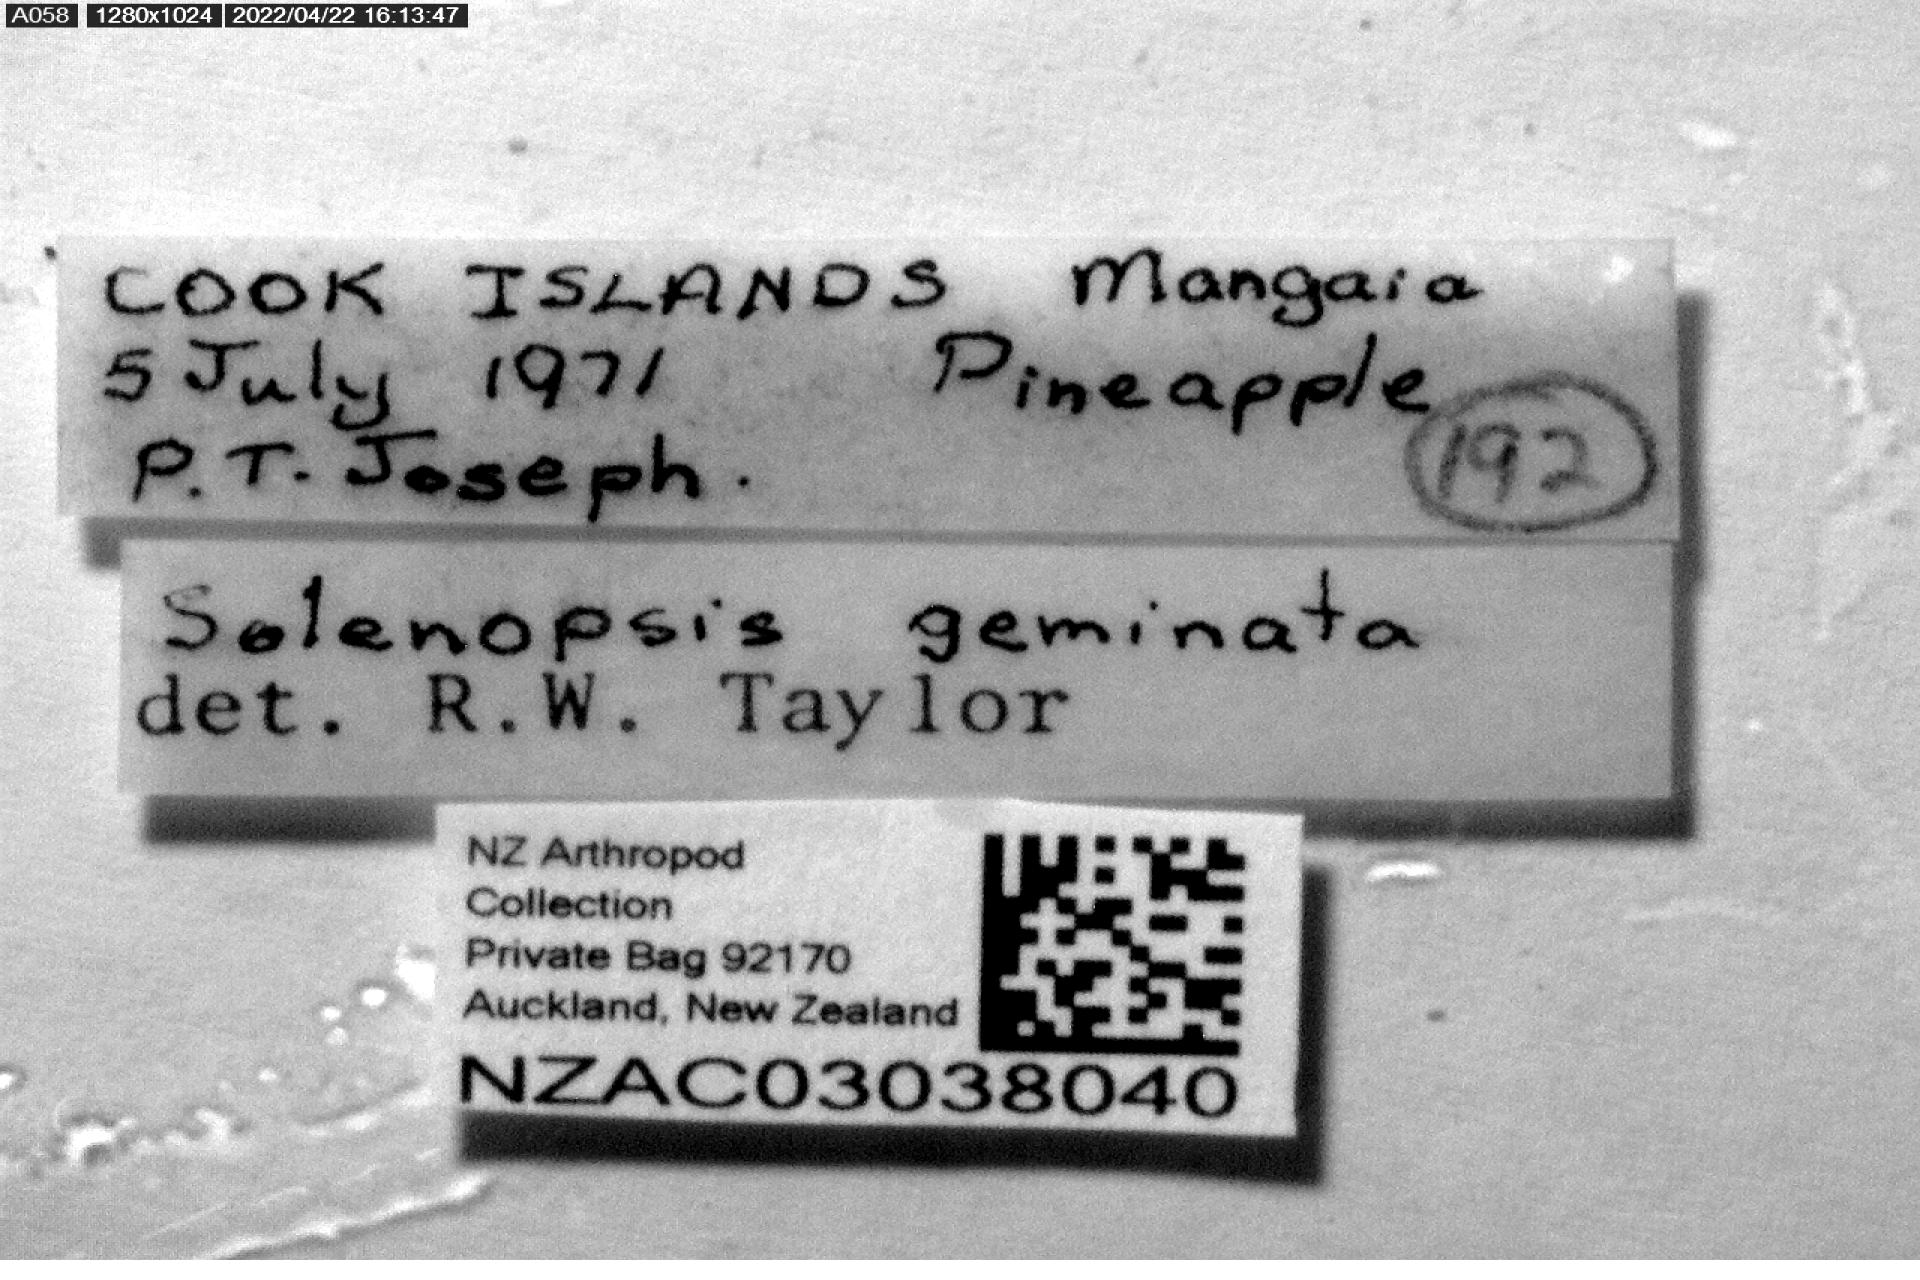 A058 1280x1024 2022/04/22 16:13:47
COOK ISLANDS Mangaia
5 July 1971 Pineapple
P.T. Joseph. 192
Solenopsis geminata
det. R.W. Taylor
NZ Arthropod
Collection
Private Bag 92170
Auckland, New Zealand
NZAC03038040